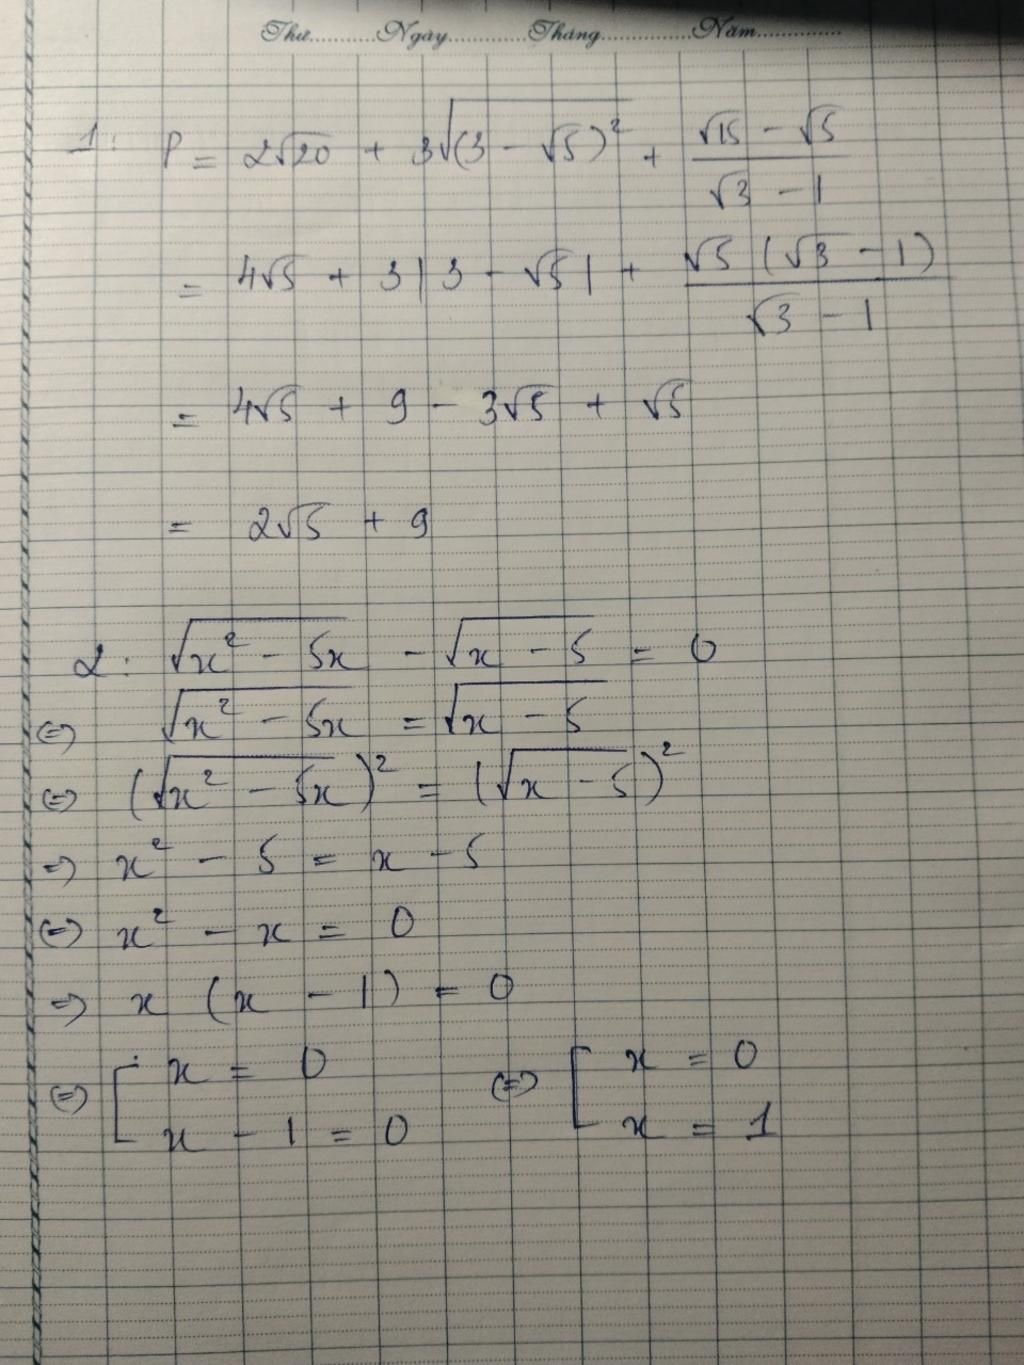 Thứ..........Ngày............Tháng..............Năm..............
1: P = 2√20 + 3√(3 - √5)² + (√15 - √5)/(√3 - 1)
= 4√5 + 3|3 - √5| + √5(√3 - 1)/(√3 - 1)
= 4√5 + 9 - 3√5 + √5
= 2√5 + 9
2: √(x² - 5x) - √(x - 5) = 0
(=) √(x² - 5x) = √(x - 5)
(=) (√(x² - 5x))² = (√(x - 5))²
=) x² - 5 = x - 5
(=) x² - x = 0
=) x (x - 1) = 0
(=) [ x = 0 (=) [ x = 0
x - 1 = 0 x = 1